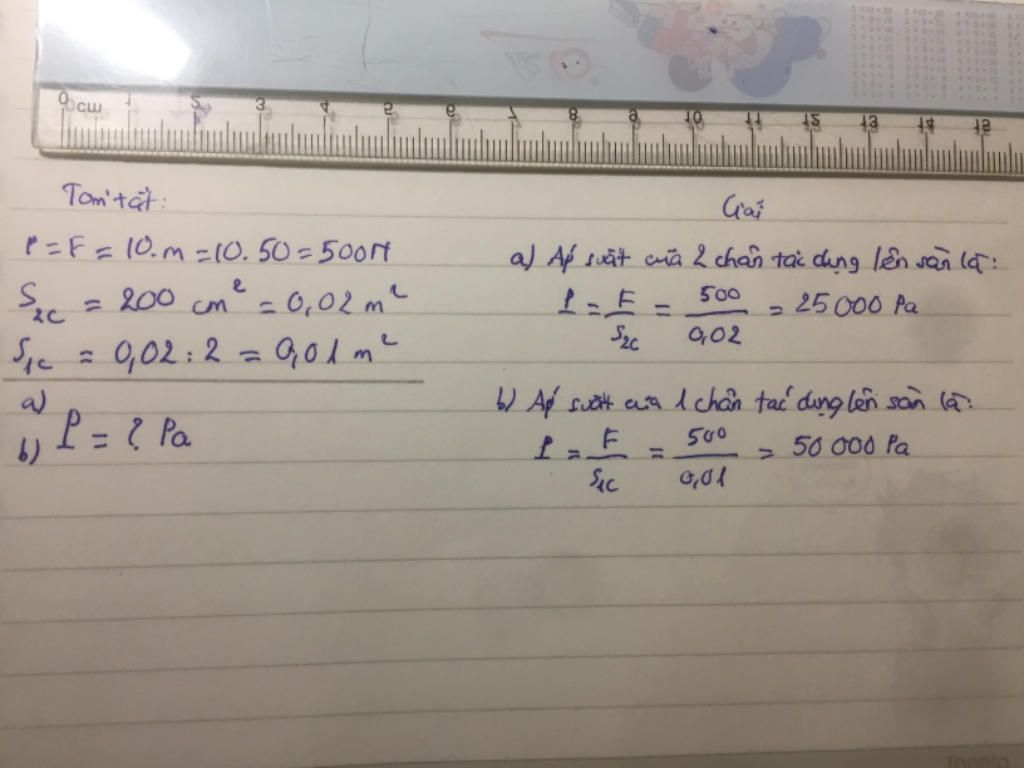 0 cm 1 2 3 4 5 6 7 8 9 10 11 12 13 14 15
Tóm tắt:
P = F = 10.m = 10.50 = 500N
S2C = 200 cm² = 0,02 m²
S1C = 0,02 : 2 = 0,01 m²
a)
b) P = ? Pa
Giải
a) Áp suất của 2 chân tác dụng lên sàn là:
P = F/S2C = 500/0,02 = 25 000 Pa
b) Áp suất của 1 chân tác dụng lên sàn là:
P = F/S1C = 500/0,01 = 50 000 Pa